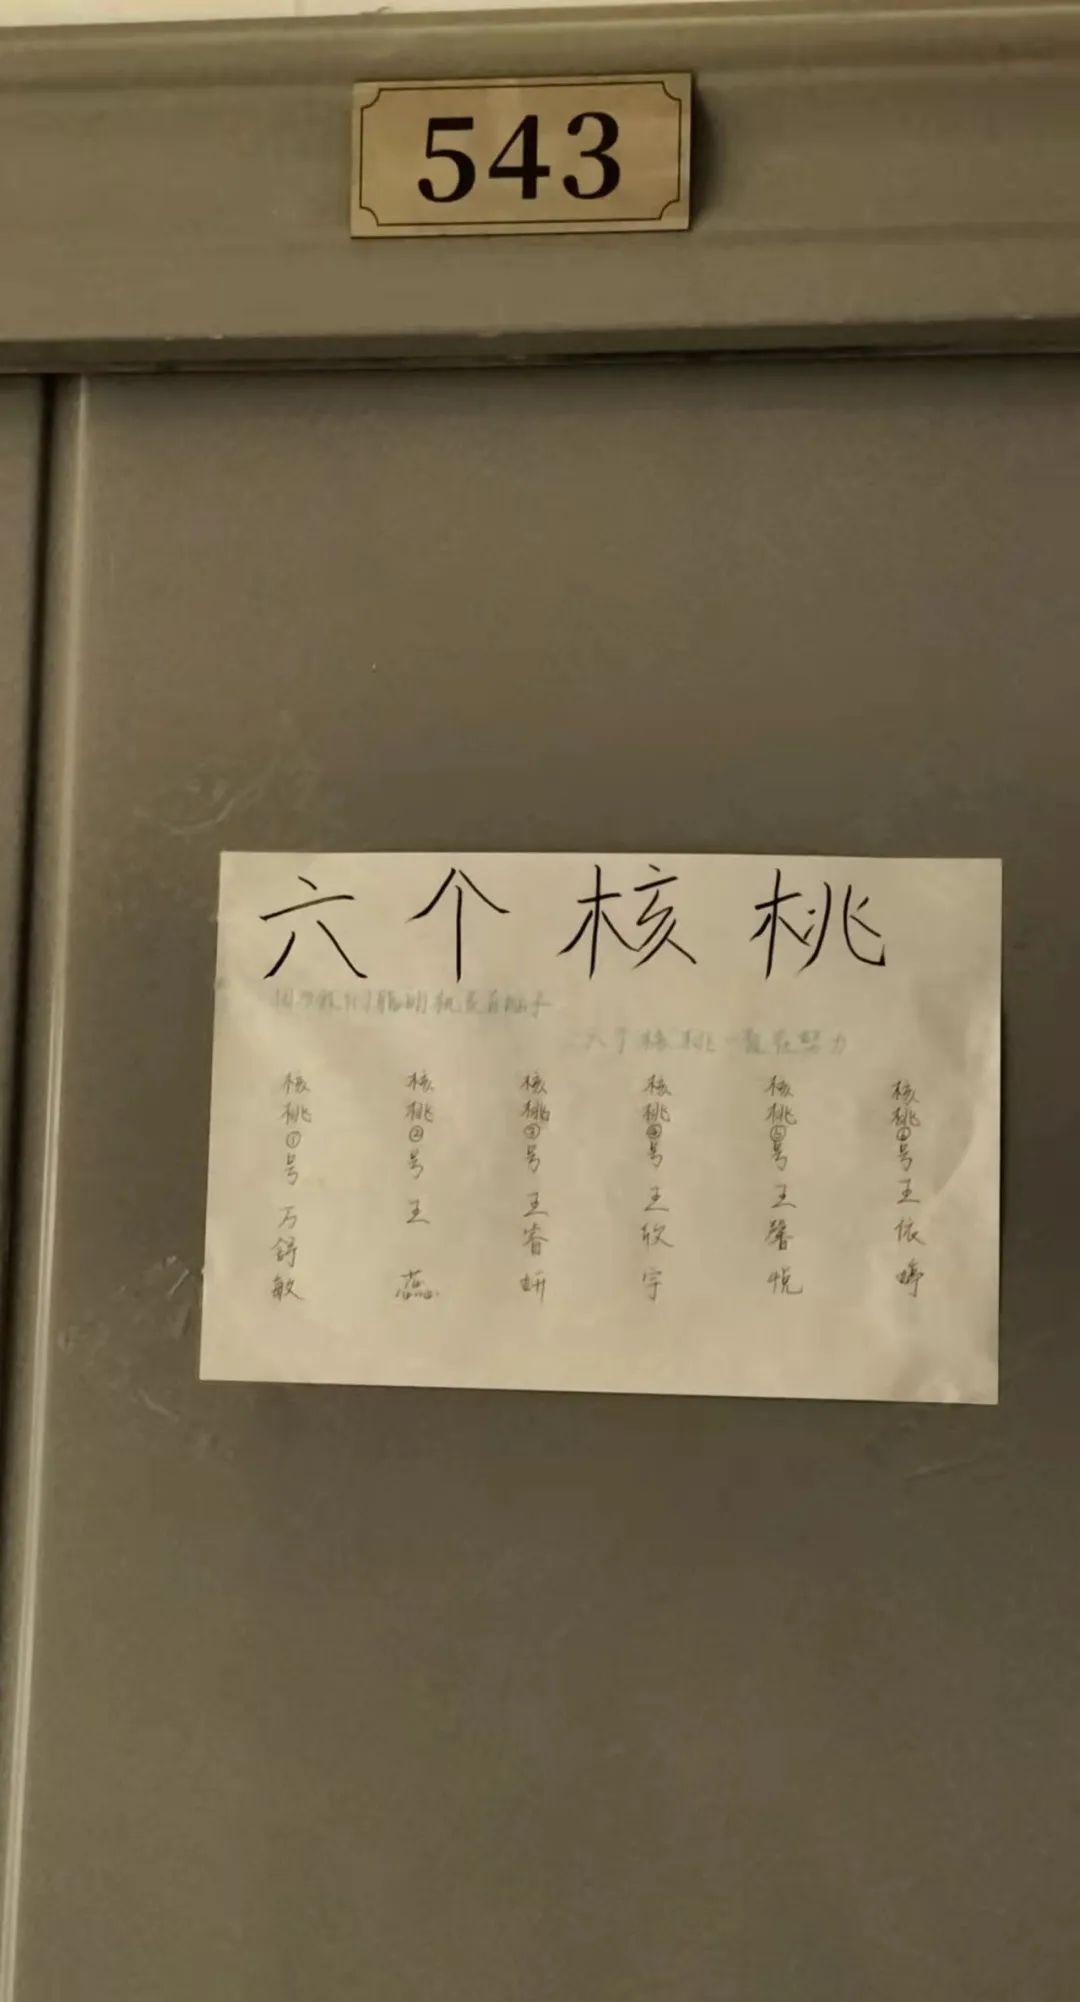 543
六个核桃
六个核桃一直在努力
核桃①号 万舒敏
核桃②号 王蕊
核桃③号 王睿妍
核桃④号 王欣宇
核桃⑤号 王馨悦
核桃⑥号 王依婷